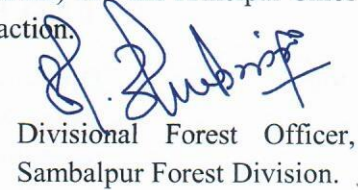 action.
Divisional Forest Officer,
Sambalpur Forest Division.